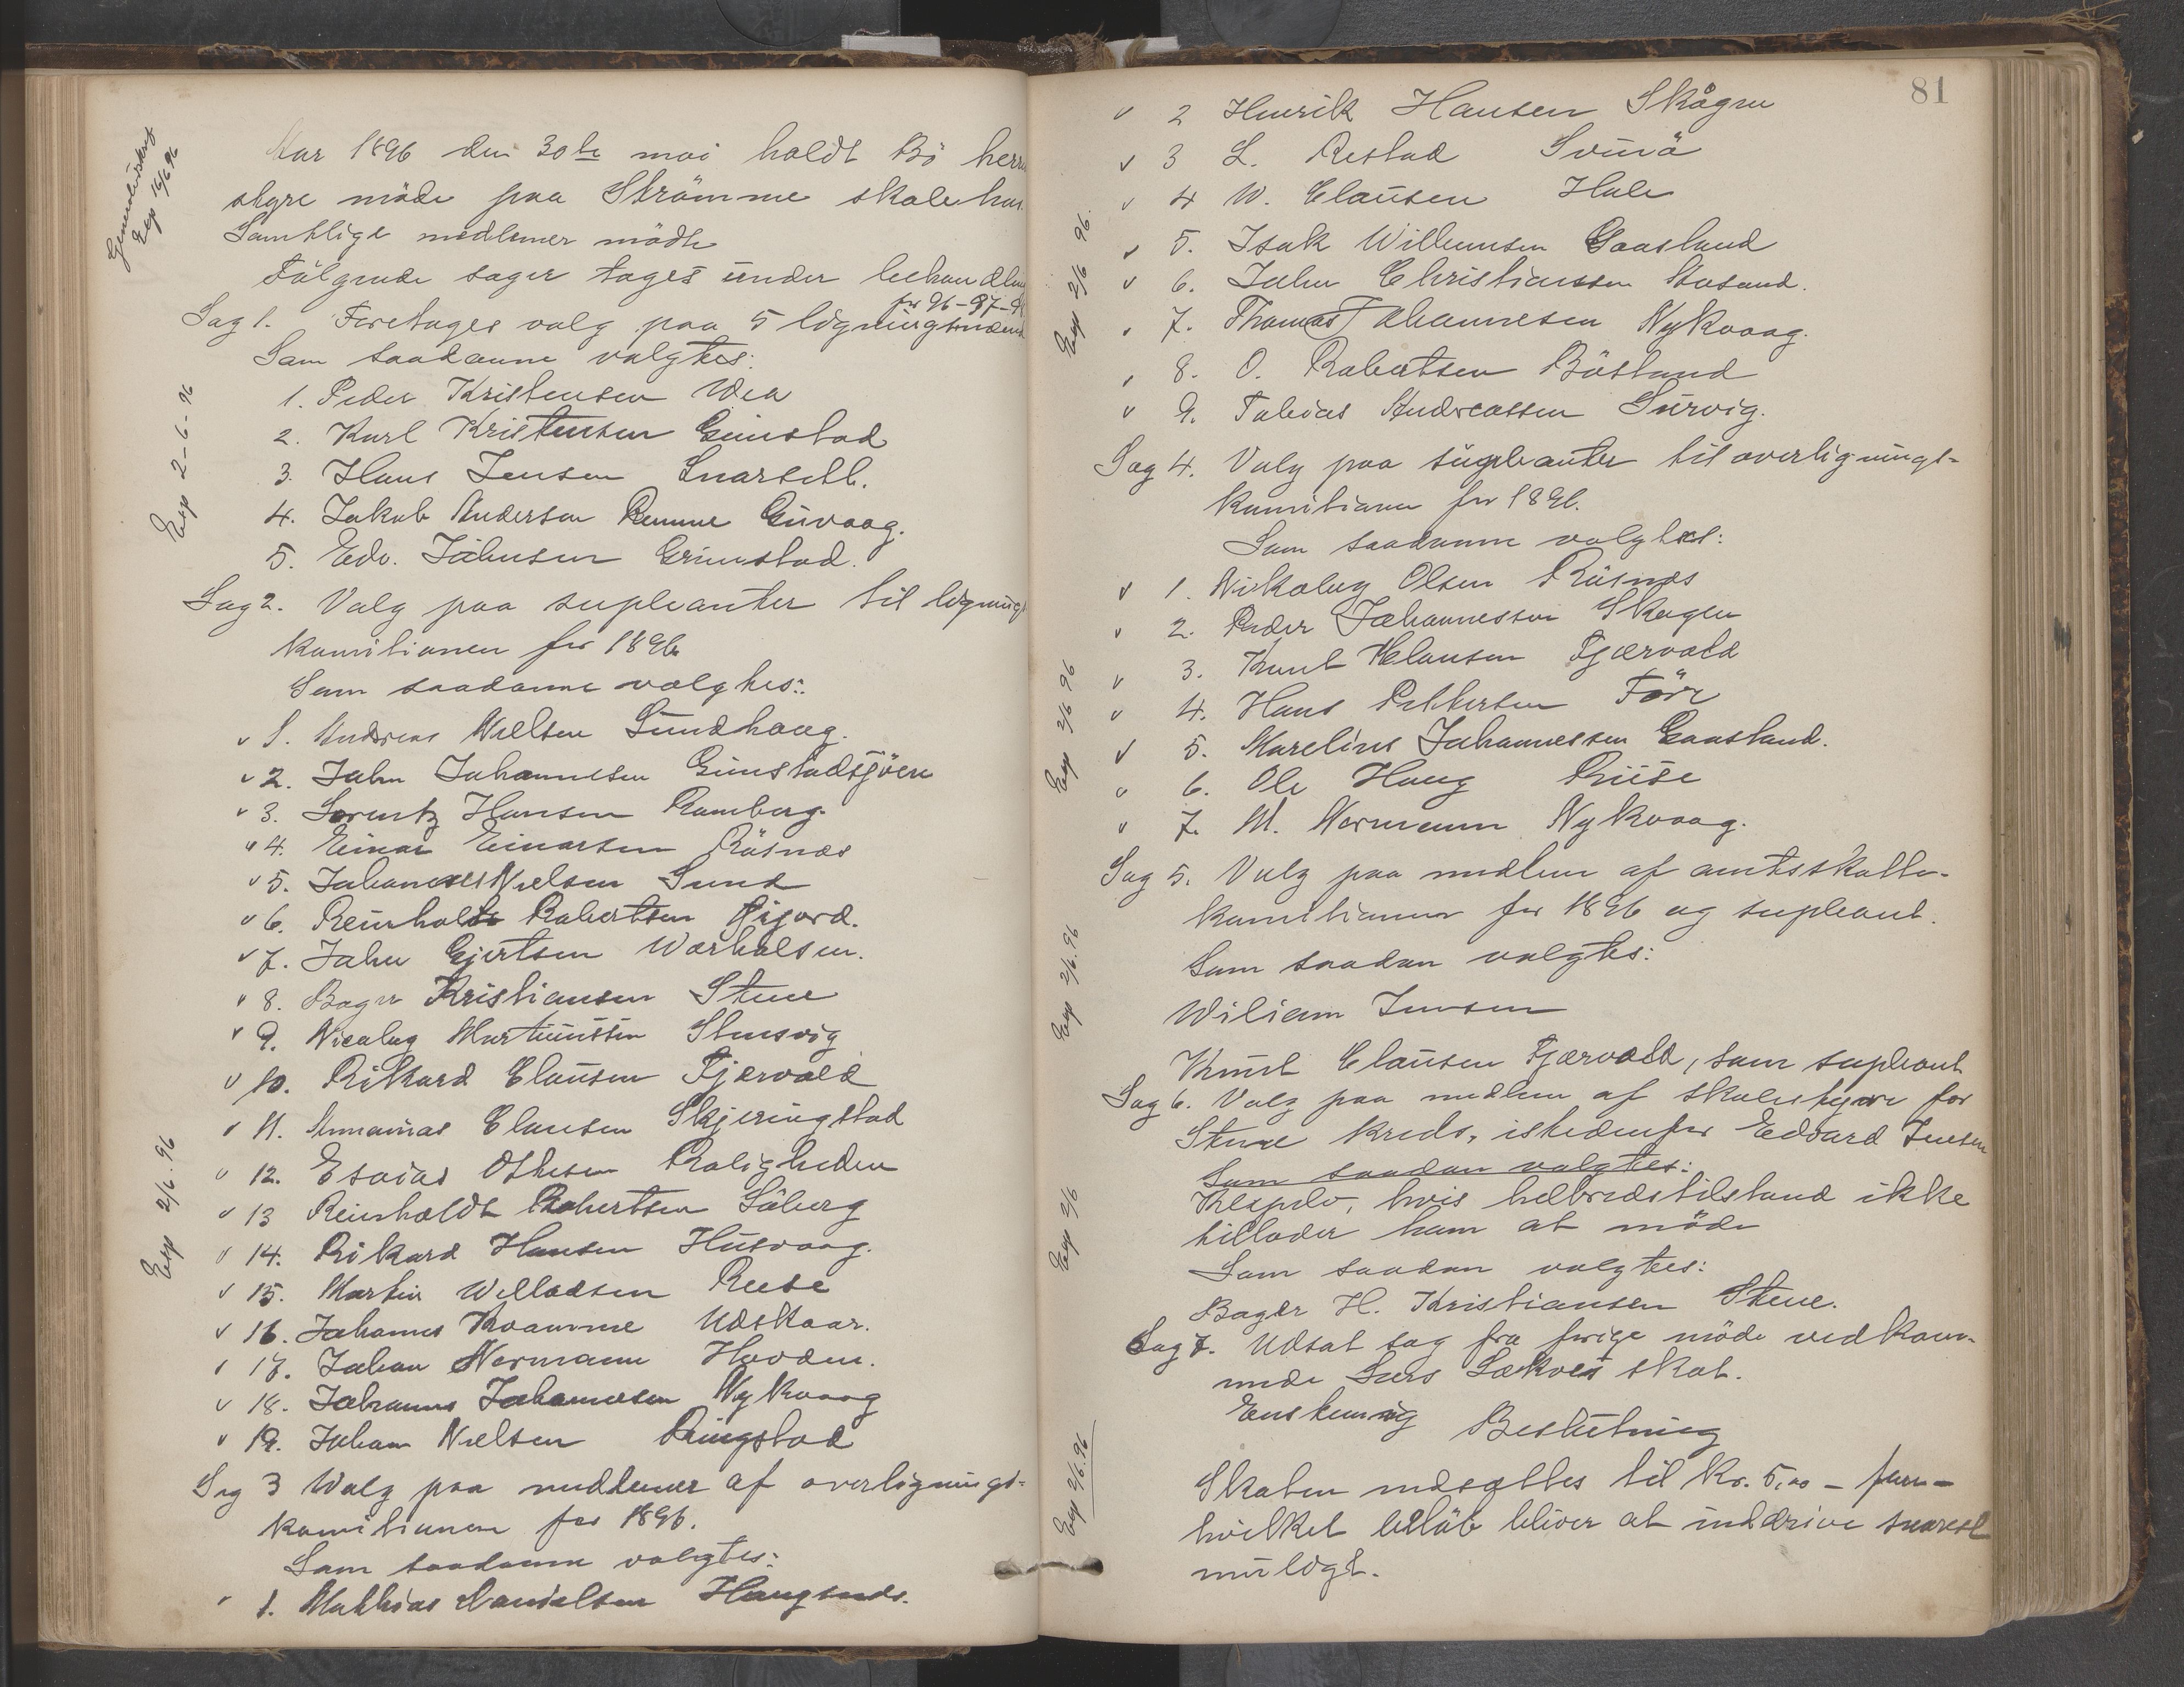 Gjenudskrevet
Exp 16/6 96
Aar 1896 den 30te mai holdt Bö herre
styre möde paa Strömme skolehus
Samtlige medlemer mödte
Fölgende sager toges under behandling
for 96-97-98
Sag 1. Foretages valg paa 5 ligningsmænd
Som saadanne valgtes:
Exp 2-6-96
1. Peder Kristensen Vea
2. Karl Kristensen Guustad
3. Hans Jensen Snarsetb.
4. Jakob Andersen Remme Guvaag.
5. Edv. Johnsen Grimstad.
Sag 2. Valg paa supleanter til lignings
komitionen for 1896
Som saadanne valgtes:
v 1. Andreas Nielsen Sundhaug.
v 2. Johan Johannesen Guustadsjöen
v 3. Lorentz Hansen Ramberg.
v 4. Einar Einarsen Rösnæs
v 5. Johannes Nielsen Sund
v 6. Reinholdt Robertsen Pijord.
v 7. Johan Gjertsen Vorhalsen.
v 8. Bager Kristiansen Stene
v 9. Nicolay Martinussen Stensvig
v 10. Rikard Clausen Fjærvold
v 11. Annanias Clausen Skjeringstad
Exp 2/6. 96
v 12. Esaias Othesen Roligheden
v 13 Reinholdt Robertsen Söberg
v 14. Rikard Hansen Husvaag.
v 15. Martin Willadsen Reise
v 16. Johannes Kvamme Udskaar.
v 17. Johan Normann Hovden.
v 18. Johannes Johannesen Nykvaag
v 19. Johan Nielsen Ringstad
Sag 3 Valg paa medlemer af overlignings-
komitionen for 1896.
Som saadanne valgtes:
1. Mathias Danielsen Haugsnes.
81
v 2 Henrik Hansen Skågen
v 3 L. Restad Svinö
v 4 W. Clausen Hole
Exp 2/6 96.
v 5. Isak Willumsen Gaasland
v 6. John Christianssen Aasand.
v 7. Thomas Johannesen Nykvaag.
v 8. O. Robertsen Böstrand
v 9. Tobias Andreassen Survig.
Sag 4. Valg paa supleanter til overlignings-
komitionen for 1896.
Som saadanne valgtes:
v 1. Nikolay Olsen Röisnæs
v 2. Peder Johannessen Skagen
Exp 2/6 96
v 3. Knut Klausen Fjærvold
v 4. Hans Pettersen Före
v 5. Marelius Johannessen Gaasland.
v 6. Ole Haug Riise
v 7. M. Normann Nykvaag.
Sag 5. Valg paa medlem af amtsskatte-
komitionen for 1896 og supleant.
Exp 2/6. 96
Som saadan valgtes:
Wiliam Jensen
Knut Clausen Fjærvold, som supleant
Sag 6. Valg paa medlem af skolestyre for
Stene kreds, istedenfor Edvard Jensen
Som saadan valgtes:
Exp 2/6
Kleppelv, hvis helbredstilstand ikke
tillader ham at möde
Som saadan valgtes:
Bager H. Kristiansen Stene.
Sag 7. Udsat sag fra forige möde vedkom-
mende Lars Lækves skat.
Enstemmig Beslutning
Exp 2/6.96
Skaten nedsættes til Kr. 5,00 - fem -
hvilket belöb bliver at inddrive snarest
muligt.